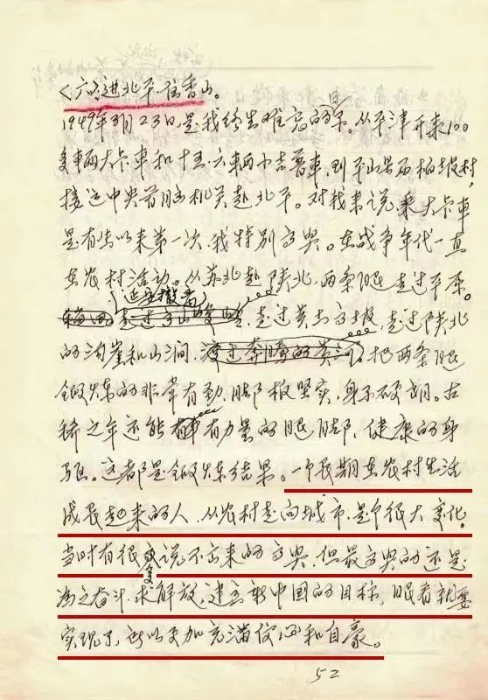 〈六〉进北平.住香山。
1949年3月23日是我终生难忘的一天。从平津开来100
多辆大卡車和十五、六辆小吉普車,到平山县西柏坡村,
接迎中央首脑机关赴北平。对我来说,乘大卡車
是有生以来第一次,我特别高兴。在战争年代一直
在农村活动。从苏北赴陕北,两条腿走过平原。
走过黄土高坡,走过陕北
的沟崖和山涧,渡过奔腾的黄河,把两条腿
锻炼的非常有劲,脚板坚实,身子硬朗。古
稀之年还能有力量的腿脚,健康的身
躯。这都是锻炼结果。一个长期在农村生活
成长起来的人,从农村走向城市,是个很大变化。
当时有很多说不出来的高兴,但最高兴的还是
为之奋斗,求解放,建立新中国的目标,眼看就要
实现了,所以更加充满信心和自豪。
52